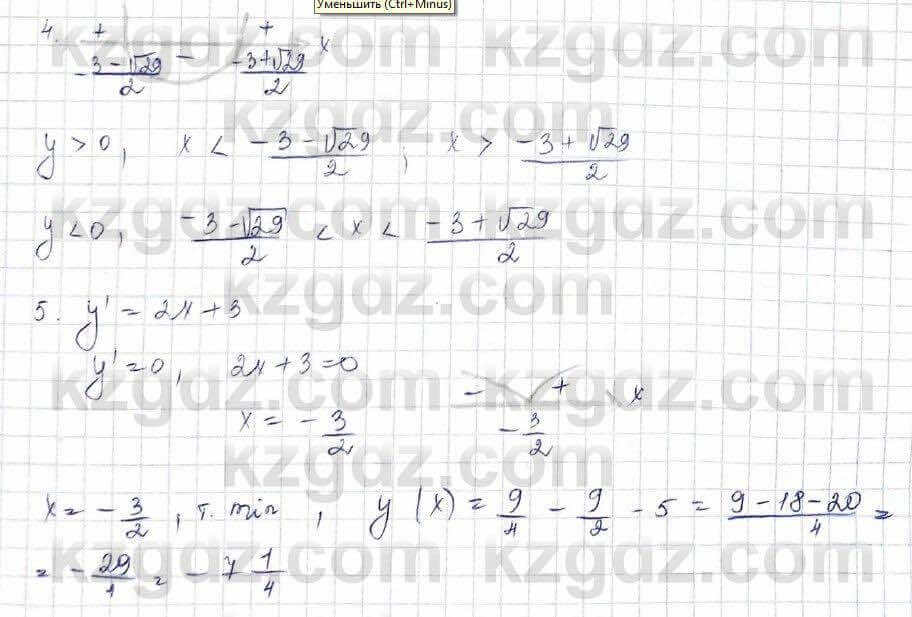 Уменьшить (Ctrl+Minus)
4. + − + x
(-3-√29)/2 (-3+√29)/2
y > 0, x < (-3-√29)/2 ; x > (-3+√29)/2
y < 0, (-3-√29)/2 < x < (-3+√29)/2
5. y' = 2x + 3
y' = 0, 2x + 3 = 0
x = -3/2 − + x
-3/2
x = -3/2, т. min, y(x) = 9/4 - 9/2 - 5 = (9-18-20)/4 =
= -29/4 = -7 1/4
kzgdz.com